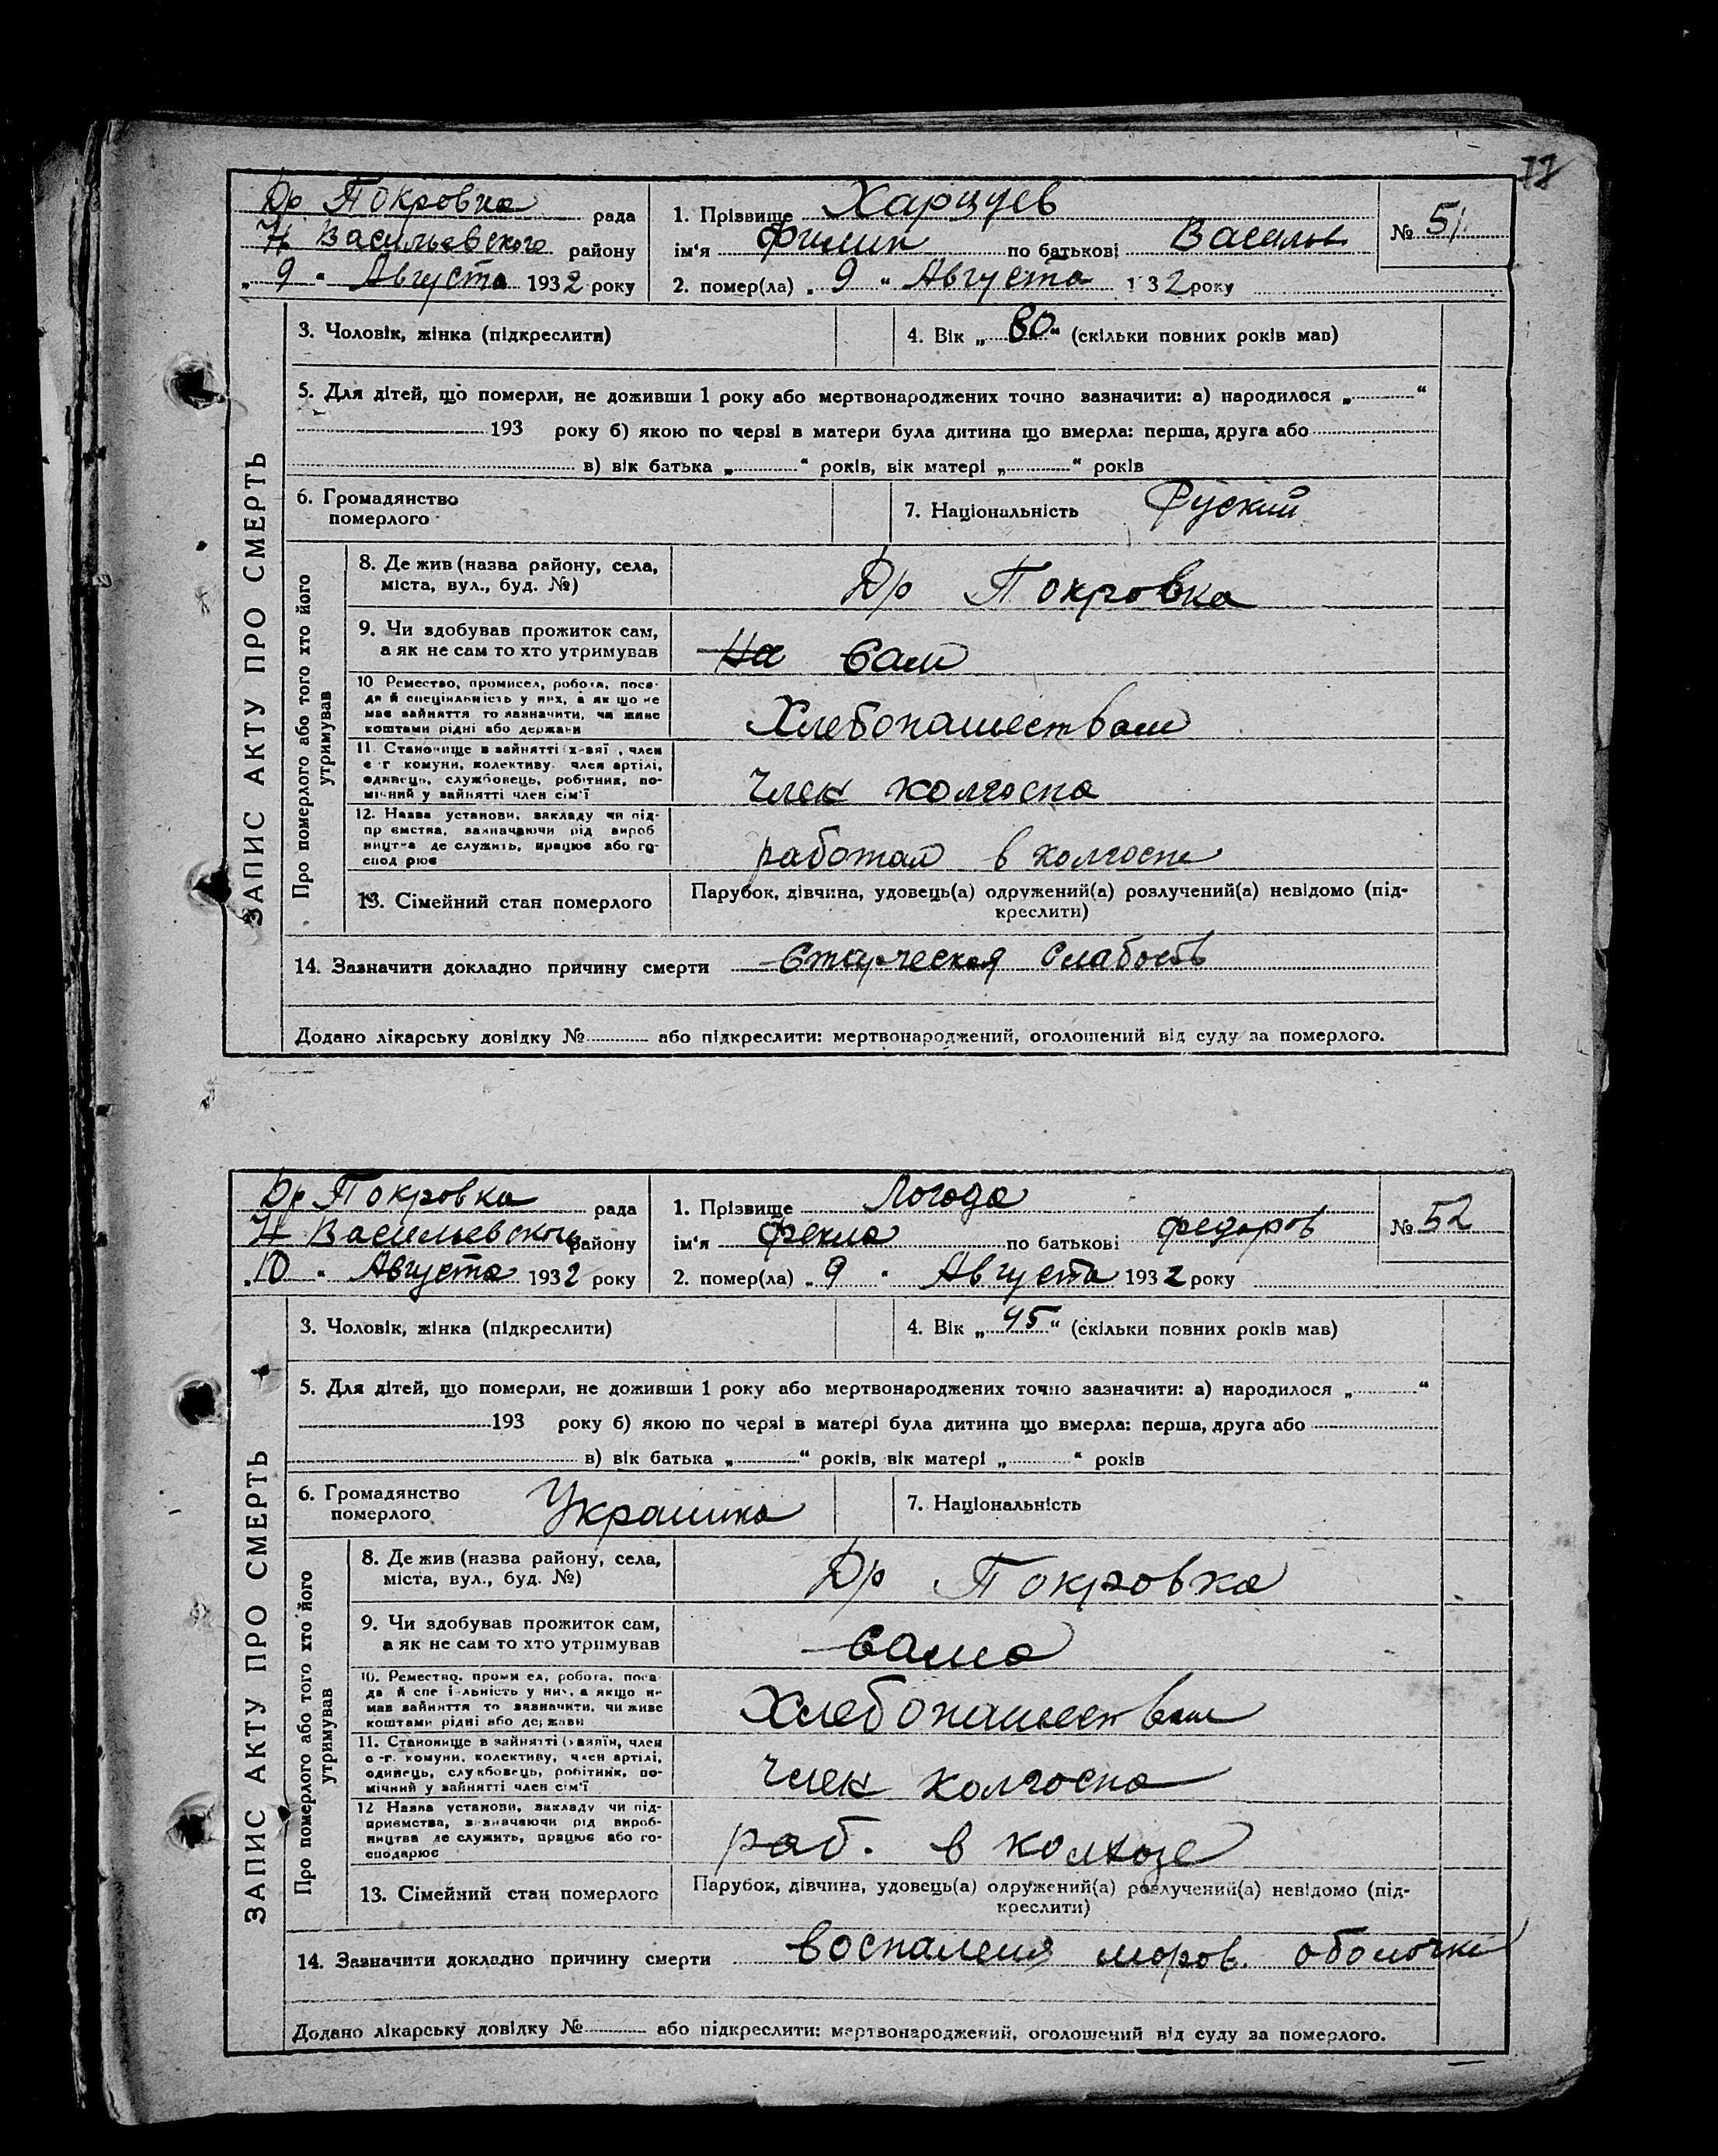 17
Др. Покровка рада
Н Васильевского району
„ 9 " Августа 1932 року
1. Прізвище Харцуев
ім'я Филип по батькові Василов
2. помер(ла) „ 9 " Августа 1 32 року
№ 51
ЗАПИС АКТУ ПРО СМЕРТЬ
3. Чоловік, жінка (підкреслити)
4. Вік „ 80 " (скільки повних років мав)
5. Для дітей, що померли, не доживши 1 року або мертвонароджених точно зазначити: а) народилося „ "
193 року б) якою по черзі в матери була дитина що вмерла: перша, друга або
в) вік батька „ " років, вік матері „ " років
6. Громадянство
померлого
7. Національність Руский
Про померлого або того хто його
утримував
8. Де жив (назва району, села,
міста, вул., буд. №)
Др Покровка
9. Чи здобував прожиток сам,
а як не сам то хто утримував
На Сам
10 Ремество, промисел, робота, поса-
да й спеціяльність у них, а як що не
має зайняття то зазначити, чи живе
коштами рідні або держави
Хлебопашеством
11. Становище в зайнятті х-вяї , член
с г комуни, колективу, член артілі,
одинець, службовець, робітник, по-
мічний у зайнятті член сім'ї
член колгоспа
12. Назва установи, закладу чи під-
пр ємства, зазначаючи рід вироб
ництва де служить, працює або го-
спод рює
работал в колгоспе
13. Сімейний стан померлого
Парубок, дівчина, удовець(а) одружений(а) розлучений(а) невідомо (під-
креслити)
14. Зазначити докладно причину смерти Старческая Слабость
Додано лікарську довідку № або підкреслити: мертвонароджений, оголошений від суду за померлого.
Др Покровка рада
Н Васильевского району
„ 10 " Августа 1932 року
1. Прізвище Логода
ім'я Фекла по батькові Федоров
2. помер(ла) „ 9 " Августа 1932 року
№ 52
ЗАПИС АКТУ ПРО СМЕРТЬ
3. Чоловік, жінка (підкреслити)
4. Вік „ 45 " (скільки повних років мав)
5. Для дітей, що померли, не доживши 1 року або мертвонароджених точно зазначити: а) народилося „ "
193 року б) якою по черзі в матері була дитина що вмерла: перша, друга або
в) вік батька „ " років, вік матері „ " років
6. Громадянство
померлого
Украинка
7. Національність
Про померлого або того хто його
утримував
8. Де жив (назва району, села,
міста, вул., буд. №)
Др Покровка
9. Чи здобував прожиток сам,
а як не сам то хто утримував
Сама
10. Ремество, проми ел, робота, поса-
да й спе і льність у них, а якщо не
має зайняття то зазначити, чи живе
коштами рідні або держави
Хлебопашеством
11. Становище в зайнятті (хазяїн, член
с -г. комуни, колективу, член артілі,
одинець, службовець, робітник, по-
мічний у зайнятті член сім'ї
член колгоспа
12 Назва установи, закладу чи під-
приємства, зазначаючи рід вироб-
ництва де служить, працює або го-
сподарює
раб. в колхозе
13. Сімейний стан померлого
Парубок, дівчина, удовець(а) одружений(а) розлучений(а) невідомо (під-
креслити)
14. Зазначити докладно причину смерти воспаления моров. оболочки
Додано лікарську довідку № або підкреслити: мертвонароджений, оголошений від суду за померлого.